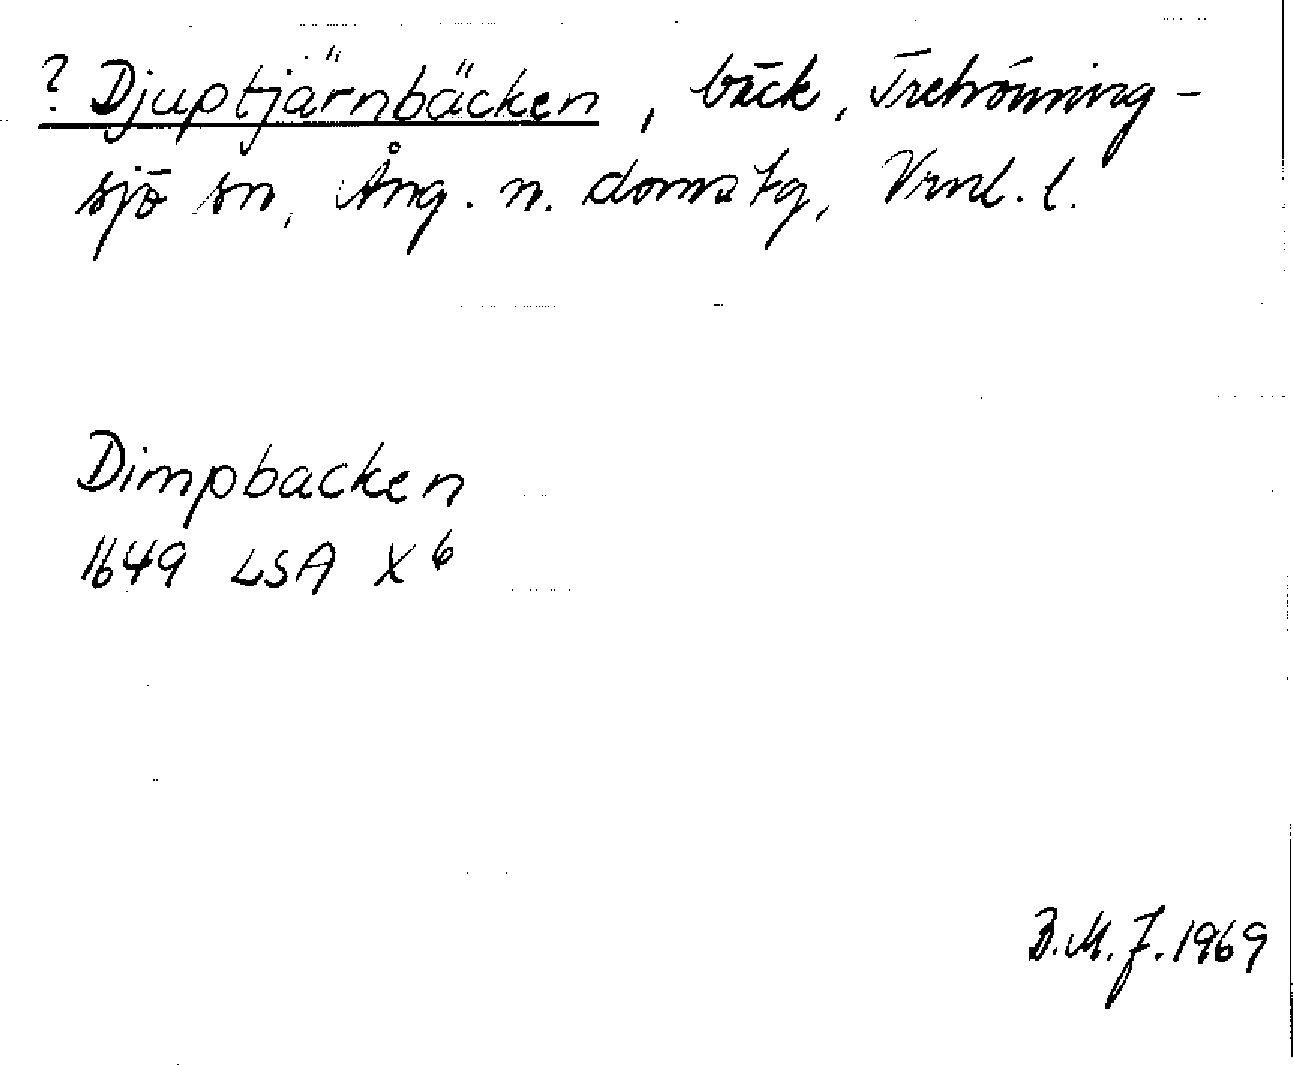 ? Djuptjärnbäcken, bäck, Trehörning-
sjö sn, Ång. n. domstg, Vrnl. l.
Dimpbacken
1649 LSA X6
B.M.J. 1969